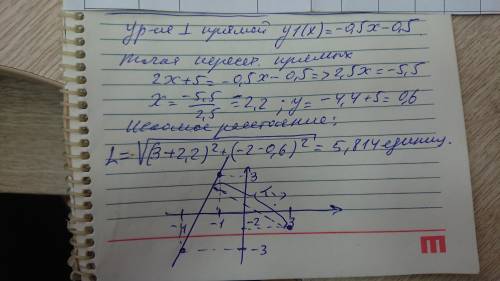 Ур-ие ⊥ прямой y1(x)=-0,5x-0,5
Тогда пересеч. прямых
2x+5=-0,5x-0,5=>2,5x=-5,5
x=-5,5/2,5=2,2; y=-4,4+5=0,6
Искомое расстояние:
L=√(3+2,2)²+(-2-0,6)²=5,814 единиц.
3
-4 -1 -2 3
-3